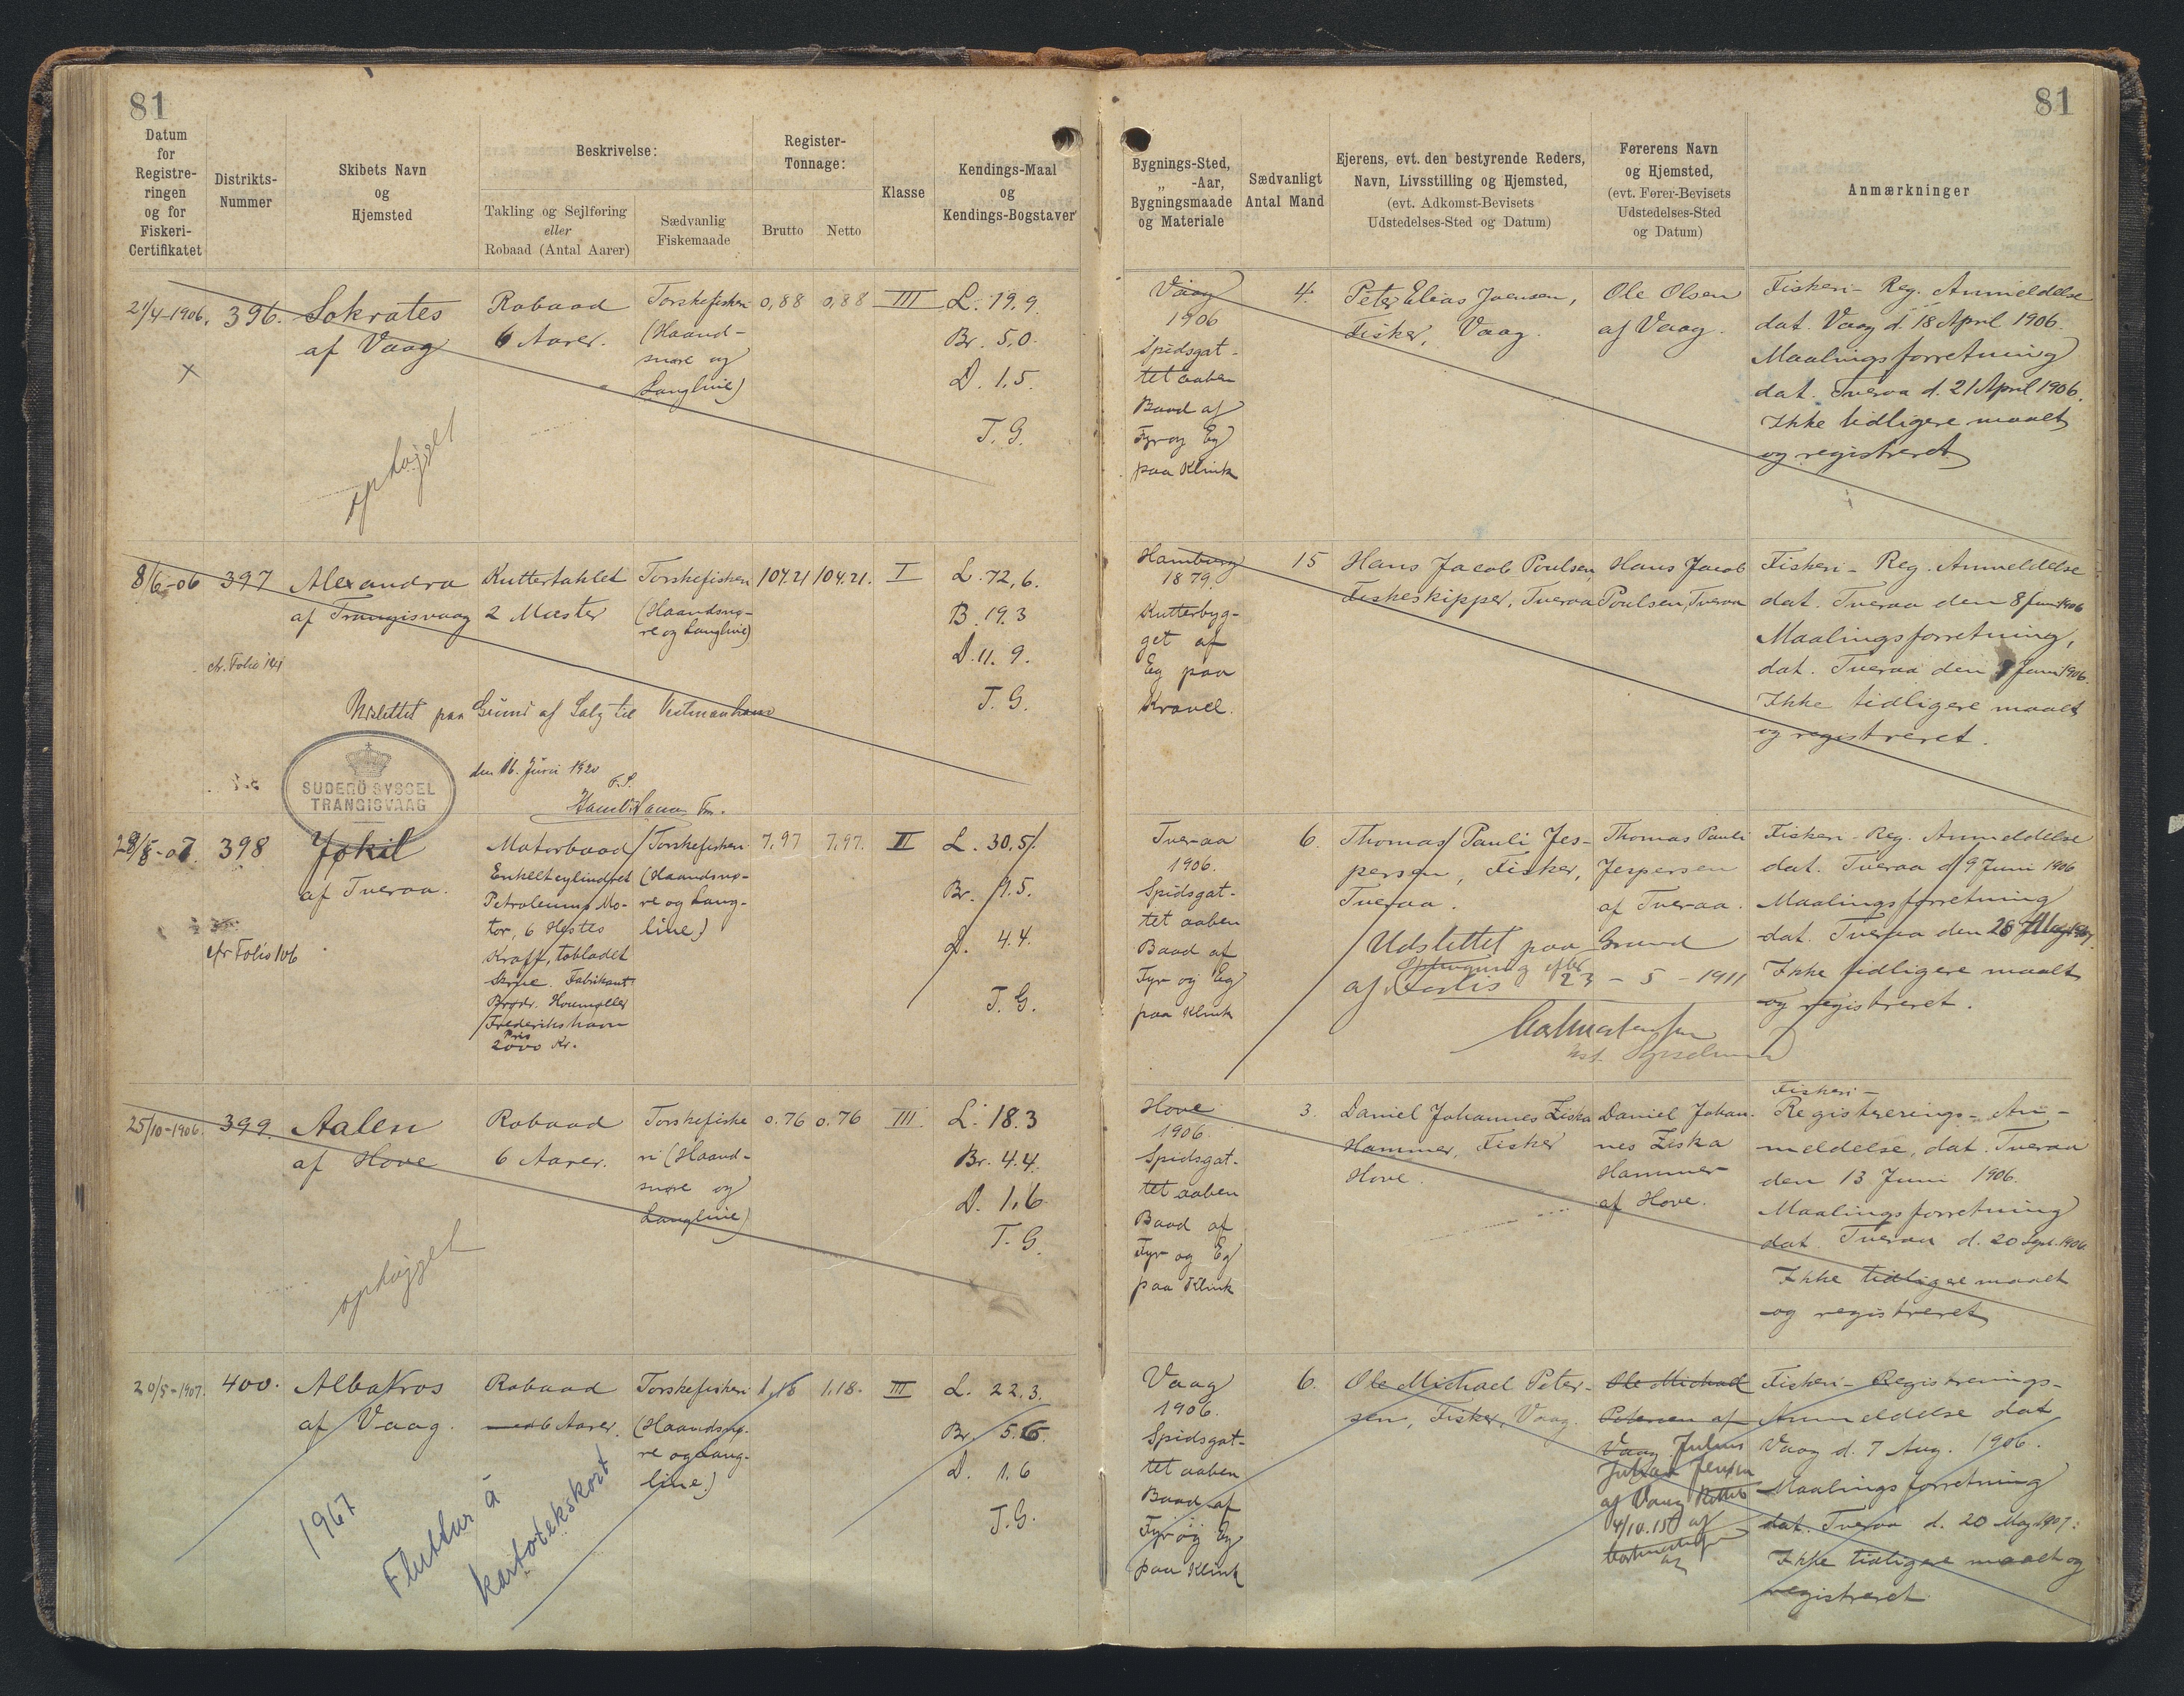 81
81
Datum
for
Registre-
ringen
og for
Fiskeri-
Certifikatet
Distrikts-
Nummer
Skibets Navn
og
Hjemsted
Beskrivelse:
Takling og Sejlføring
eller
Robaad (Antal Aarer)
Sædvanlig
Fiskemaade
Register-
Tonnage:
Brutto
Netto
Klasse
Kendings-Maal
og
Kendings-Bogstaver
Bygnings-Sted,
„ -Aar,
Bygningsmaade
og Materiale
Sædvanligt
Antal Mand
Ejerens, evt. den bestyrende Reders,
Navn, Livsstilling og Hjemsted,
(evt. Adkomst-Bevisets
Udstedelses-Sted og Datum)
Førerens Navn
og Hjemsted,
(evt. Fører-Bevisets
Udstedelses-Sted
og Datum)
Anmærkninger
21/4-1906.
×
396.
Sokrates
af Vaag
ophøjet
Robaad
6 Aarer.
Torskefiskeri
(Haand-
snøre og
Langline)
0,88
0,88
III
L. 19.9.
Br. 5,0.
D. 1,5.
T. G.
Vaag
1906
Spidsgat-
tet aaben
Baad af
Fyr og Eg
paa Klink
4.
Peter Elias Joensen,
Fisker, Vaag.
Ole Olsen
af Vaag.
Fiskeri- Reg. Anmeldelse
dat. Vaag d. 18 April 1906.
Maalingsforretning
dat. Tveraa d. 21 April 1906.
Ikke tidligere maalt
og registreret
8/6-06
397
Alexandra
af Trangisvaag
cfr. Folio 141
Kuttertaklet
2 Master
Torskefiskeri
(Haandsnø-
re og Langline)
104.21
104,21.
I
L. 72,6.
B. 19.3
D. 11. 9.
T. G.
Udslettet paa Grund af Salg til Vestmanhavn
den 16. Juni 1920
F. S.
SUDERÖ SYSSEL
TRANGISVAAG
Hamburg
1879.
Kutterbyg-
get af
Eg paa
Kravel.
15
Hans Jacob Poulsen,
Fiskeskipper, Tveraa
Hans Jacob
Poulsen, Tveraa
Fiskeri- Reg. Anmeldelse
dat. Tveraa den 8 Juni 1906
Maalingsforretning,
dat. Tveraa den 8 Juni 1906.
Ikke tidligere maalt
og registreret.
28/5-07.
398
Jøkil
af Tveraa.
cfr Folio 106
Motorbaad
Enkeltcylindret
Petroleums Mo-
tor, 6 Hestes
Kraft, tobladet
Skrue. Fabrikant
Brødr. Houmøller
Frederikshavn
Pris
2000 Kr.
Torskefiskeri
(Haandsnø-
re og Lang-
line)
7,97
7,97.
II
L. 30,5.
Br. 9.5.
D. 4.4.
T. G.
Tveraa
1906.
Spidsgat-
tet aaben
Baad af
Fyr og Eg
paa Klink
6.
Thomas Pauli Jes-
persen, Fisker,
Tveraa.
Thomas Pauli
Jespersen
af Tveraa.
Udslettet paa Grund
af Forlis 23 - 5 - 1911
Fiskeri- Reg. Anmeldelse
dat. Tveraa d. 9 Juni 1906
Maalingsforretning
dat. Tveraa den 28 May 1907.
Ikke tidligere maalt
og registreret.
25/10-1906.
399.
Aalen
af Hove
ophøjet
Robaad
6 Aarer.
Torskefiske
ri (Haand-
snøre og
Langline)
0.76
0.76
III.
L. 18.3
Br. 4.4.
D. 1.6
T. G.
Hove
1906.
Spidsgat-
tet aaben
Baad af
Fyr og Eg
paa Klink
3.
Daniel Johannes Ziska
Hammer, Fisker
Hove.
Daniel Johan-
nes Ziska
Hammer
af Hove.
Fiskeri-
Registrerings- An-
meldelse, dat. Tveraa
den 13 Juni 1906.
Maalingsforretning
dat. Tveraa d. 20 Sept. 1906.
Ikke tidligere maalt
og registreret
20/5-1907.
400.
Albatros
af Vaag.
Robaad
6 Aarer.
Torskefiskeri
(Haandsnø-
re og Lang-
line.)
1,18
1,18.
III
L. 22,3.
Br. 5.6.
D. 1.6
T. G.
1967
Fluttur á
kartotekskort
Vaag
1906.
Spidsgat-
tet aaben
Baad af
Fyr og Eg
paa Klink
6.
Ole Michael Peter-
sen, Fisker, Vaag.
Ole Michael
Petersen af
Vaag Julius
Jensen
af Vaag
4/10.15
Fiskeri- Registrerings-
Anmeldelse dat
Vaag d. 7 Aug. 1906.
Maalingsforretning
dat. Tveraa d. 20 May 1907.
Ikke tidligere maalt og
registreret